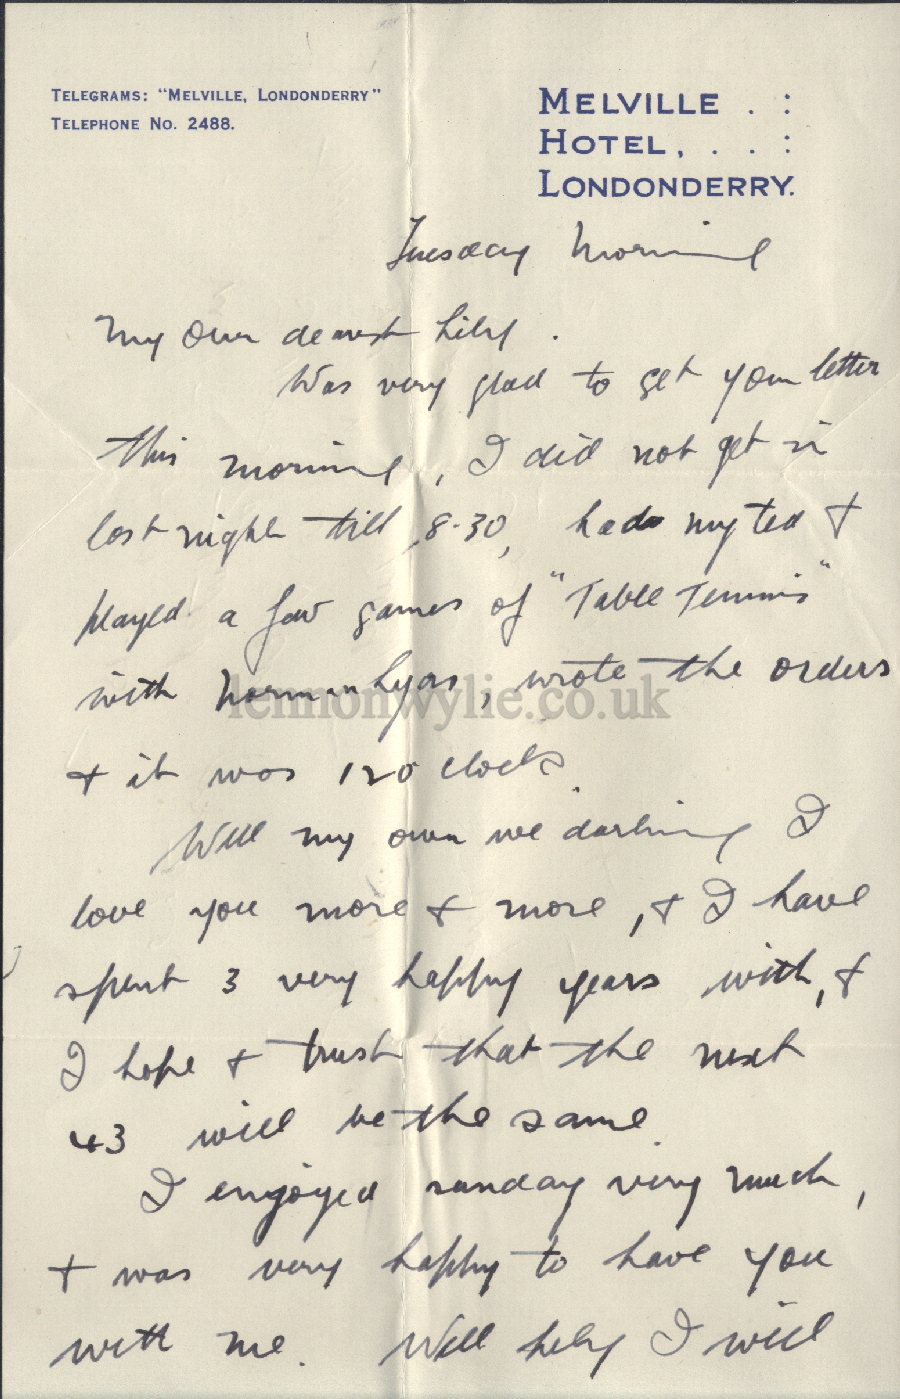 TELEGRAMS: "MELVILLE, LONDONDERRY"
TELEPHONE NO. 2488.
MELVILLE . :
HOTEL, . . . :
LONDONDERRY.
Tuesday Morning
My own dearest Lily.
Was very glad to get your letter
this morning, I did not get in
last night till 8-30, had my tea &
played a few games of "Table Tennis"
with Norman Lyons, wrote the orders
lennonwylie.co.uk
& it was 12 o clock
Well my own wee darling I
love you more & more, & I have
spent 3 very happy years with, &
I hope & trust that the next
43 will be the same.
I enjoyed sunday very much,
& was very happy to have you
with me. Well Lily I will